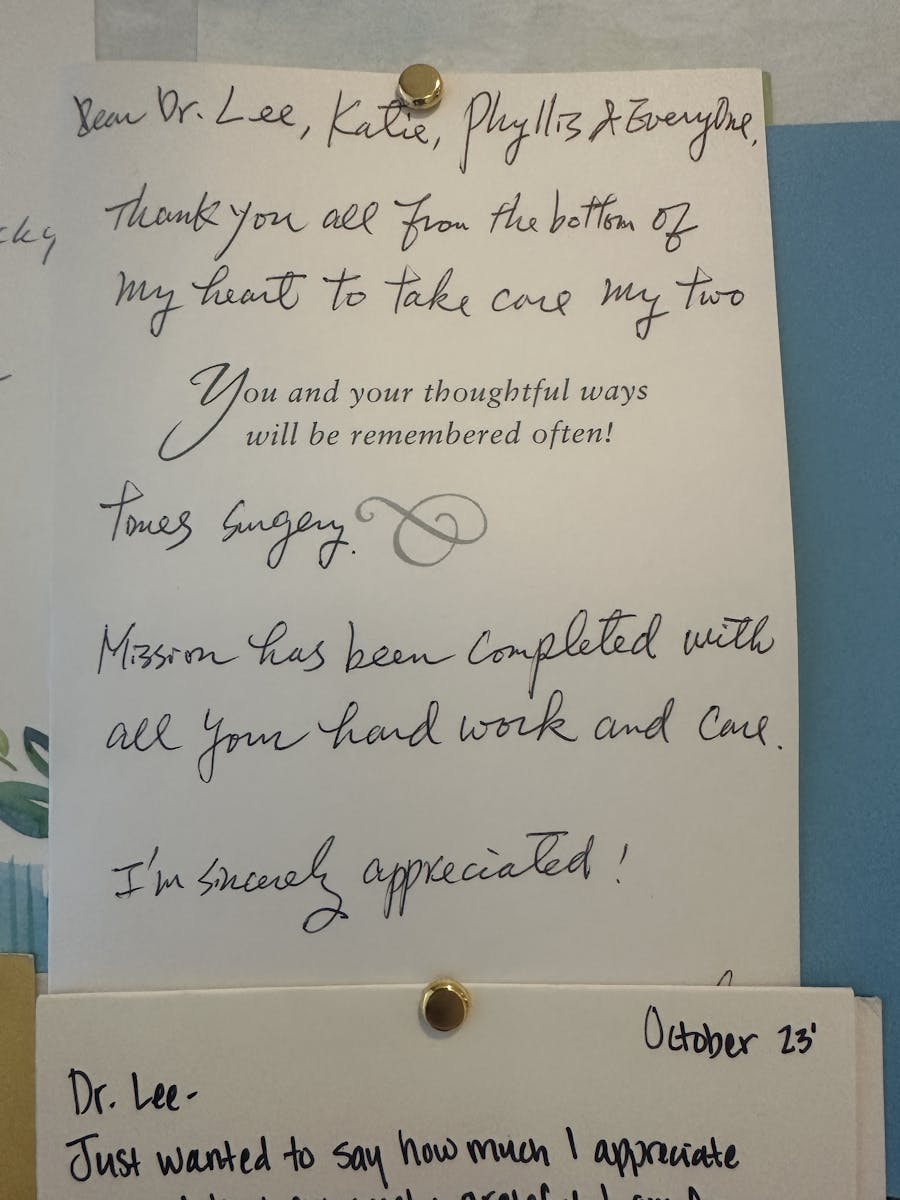 cky
Dear Dr. Lee, Katie, Phyllis & EveryOne,
Thank you all from the bottom of
my heart to take care my two
You and your thoughtful ways
will be remembered often!
times surgery.
Mission has been completed with
all your hard work and care.
I'm sincerely appreciated!
October 23'
Dr. Lee-
Just wanted to say how much I appreciate